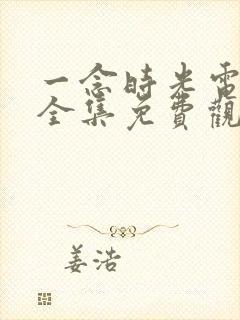 一念時光電
全集免費觀
姜浩